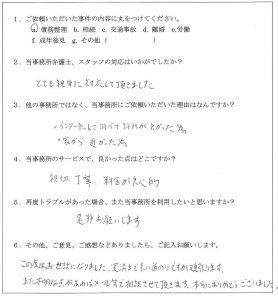 1．ご依頼いただいた事件の内容に丸をつけてください。
ⓐ債務整理 b. 相続 c. 交通事故 d. 離婚 e.労働
f. 成年後見 g. その他（ ）
2．当事務所弁護士、スタッフの対応はいかがでしたか？
とても親身に対応して頂きました
3．他の事務所ではなく、当事務所にご依頼いただいた理由はなんですか？
・インターネットで調べて評判が良かった為
・家から近かった為
4．当事務所のサービスで、良かった点はどこですか？
親切、丁寧、料金が良心的
5．再度トラブルがあった場合、また当事務所を利用したいと思いますか？
是非お願いします
6．その他、ご意見、ご感想などありましたら、ご記入お願いします。
この度はお世話になりました。完済まで長い道のりですが頑張ります。
また不明な点があればメール等で相談させて頂きます。本当にありがとうございました。